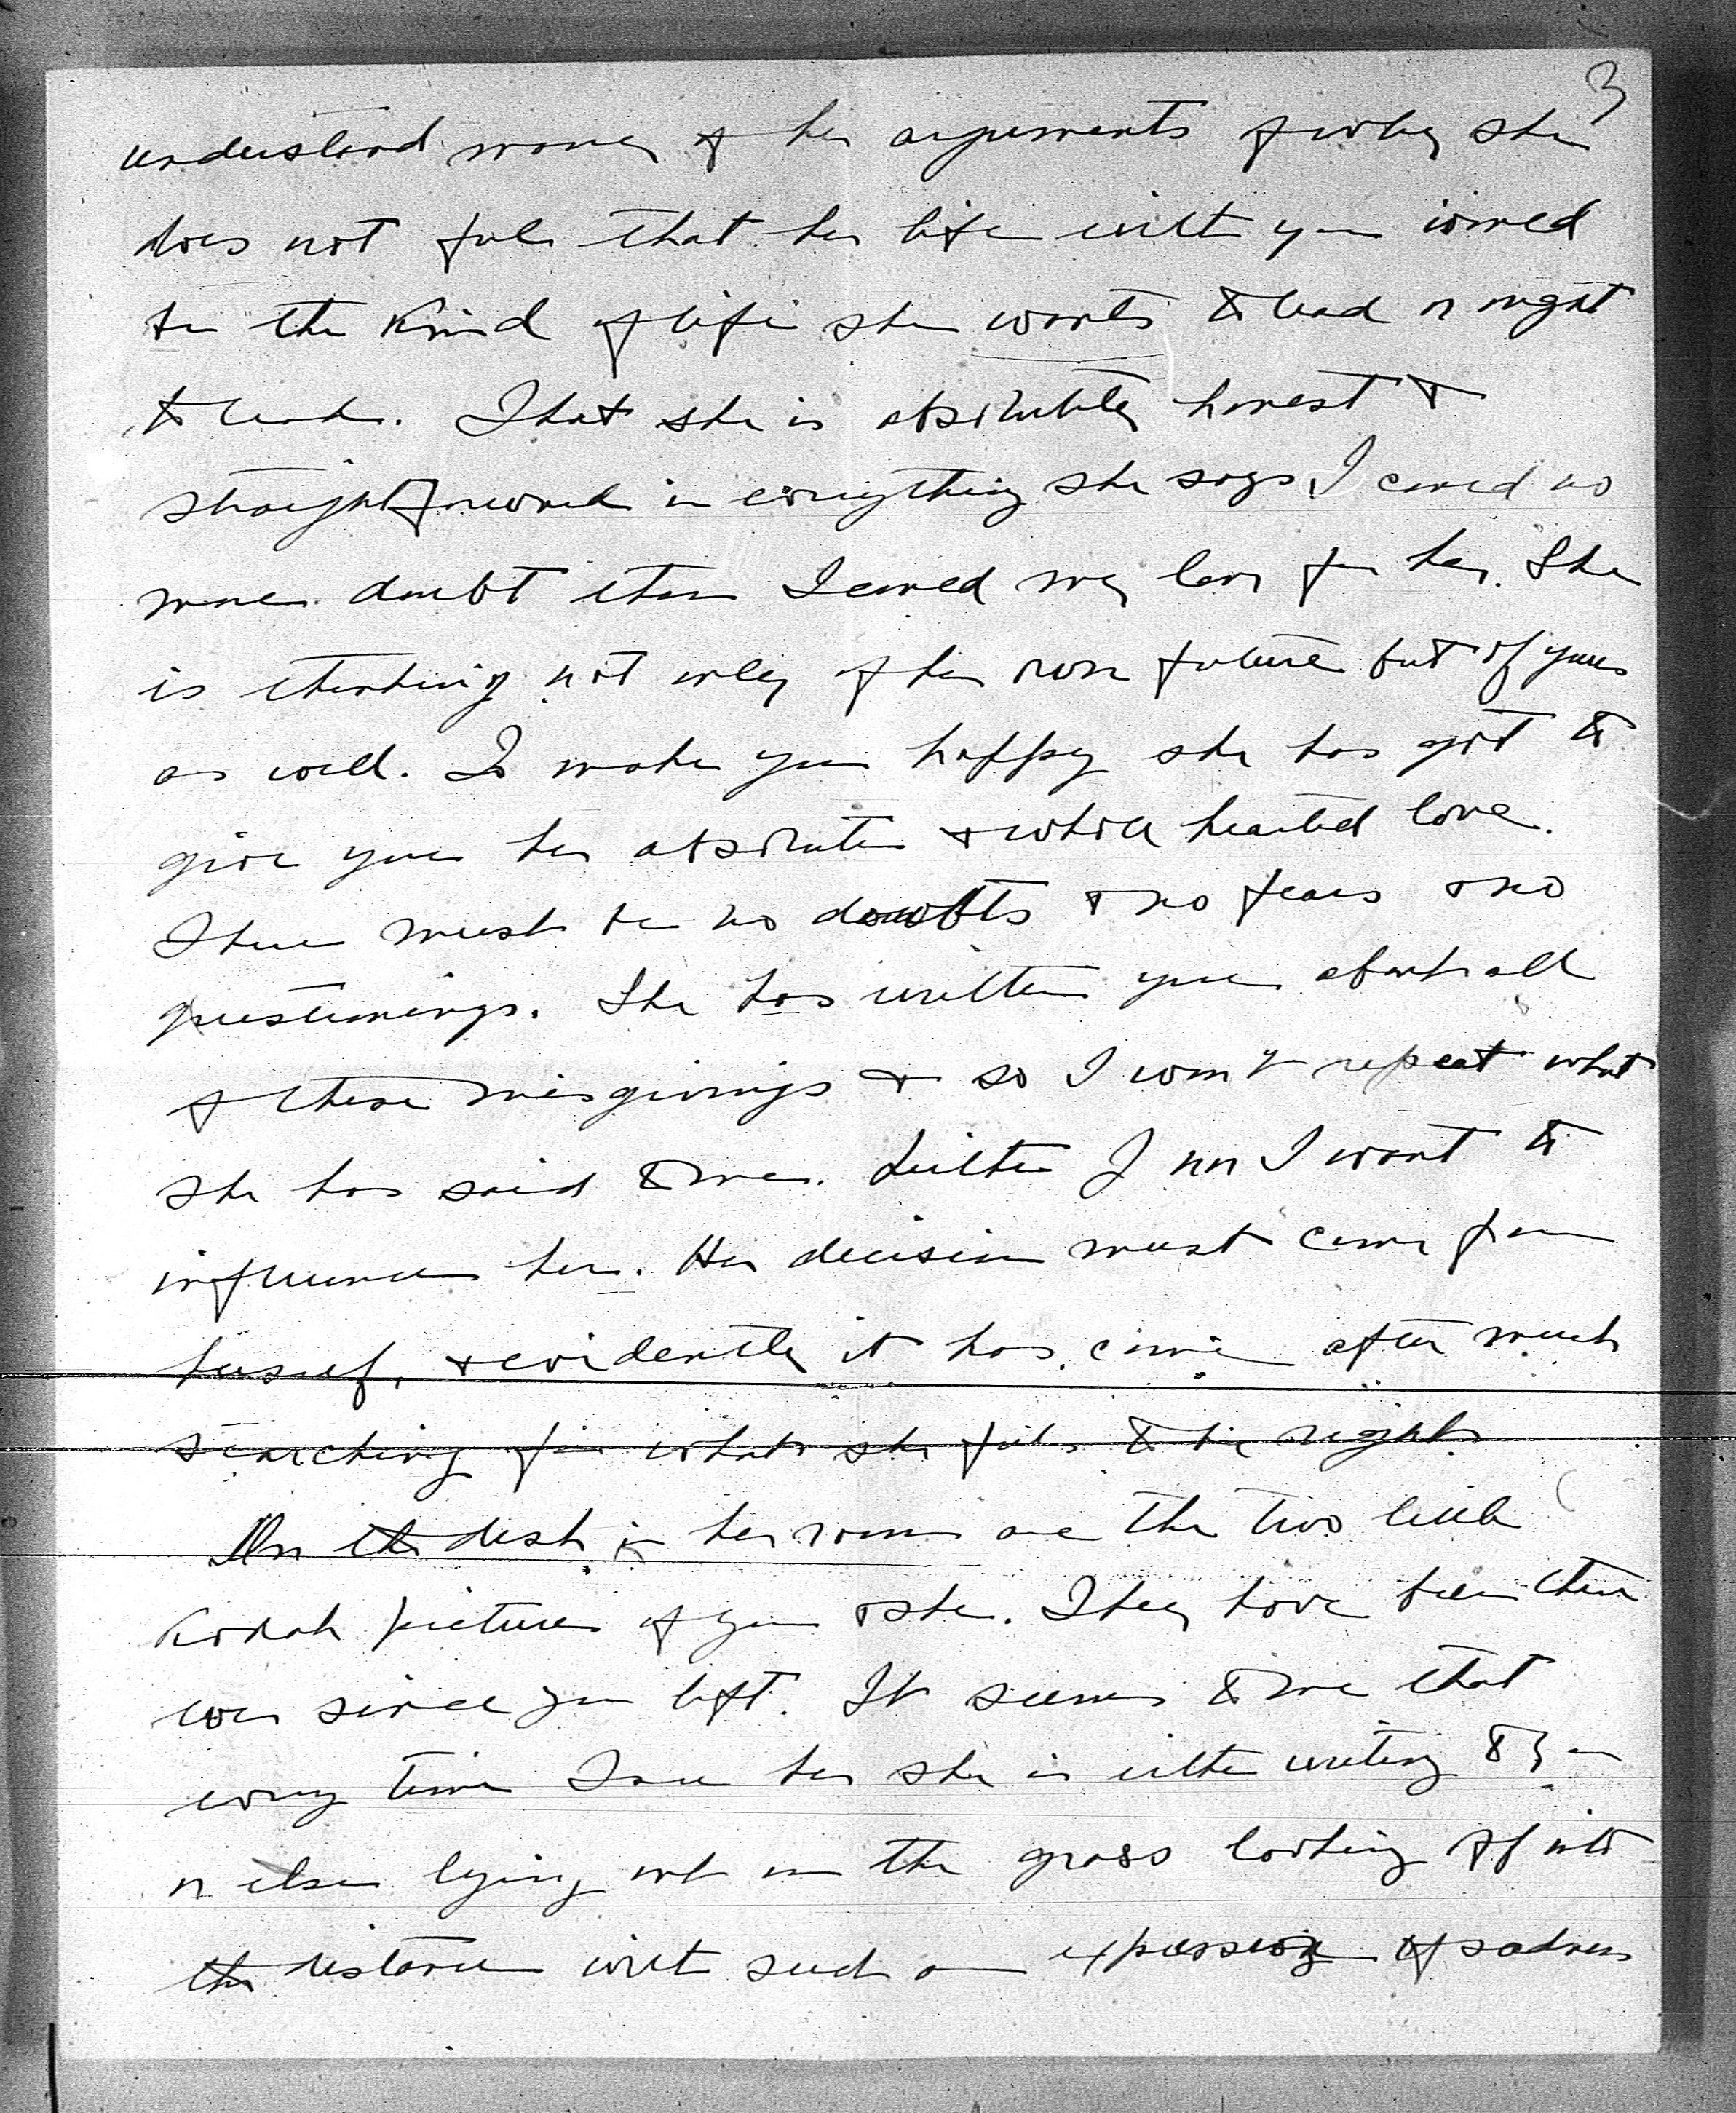 3
understand many of her arguments of why she
does not feel that her life with you would
be the kind of life she wants to lead or ought
to lead. That she is absolutely honest &
straightforward in everything she says I could no
more doubt than I could my love for her. She
is thinking not only of her own future but of yours
as well. To make you happy she has got to
give you her absolute & whole hearted love.
There must be no doubts & no fears & no
questionings. She has written you about all
of these misgivings & so I won't repeat what
she has said to me. Neither J nor I want to
influence her. Her decision must come from
herself, & evidently it has come after much
searching for what she feels to be right.
On the desk in her room are the two little
Kodak pictures of you & she. They have been there
ever since you left. It seems to me that
every time I see her she is either writing to you
or else lying out on the grass looking off into
the distance with such an expression of sadness